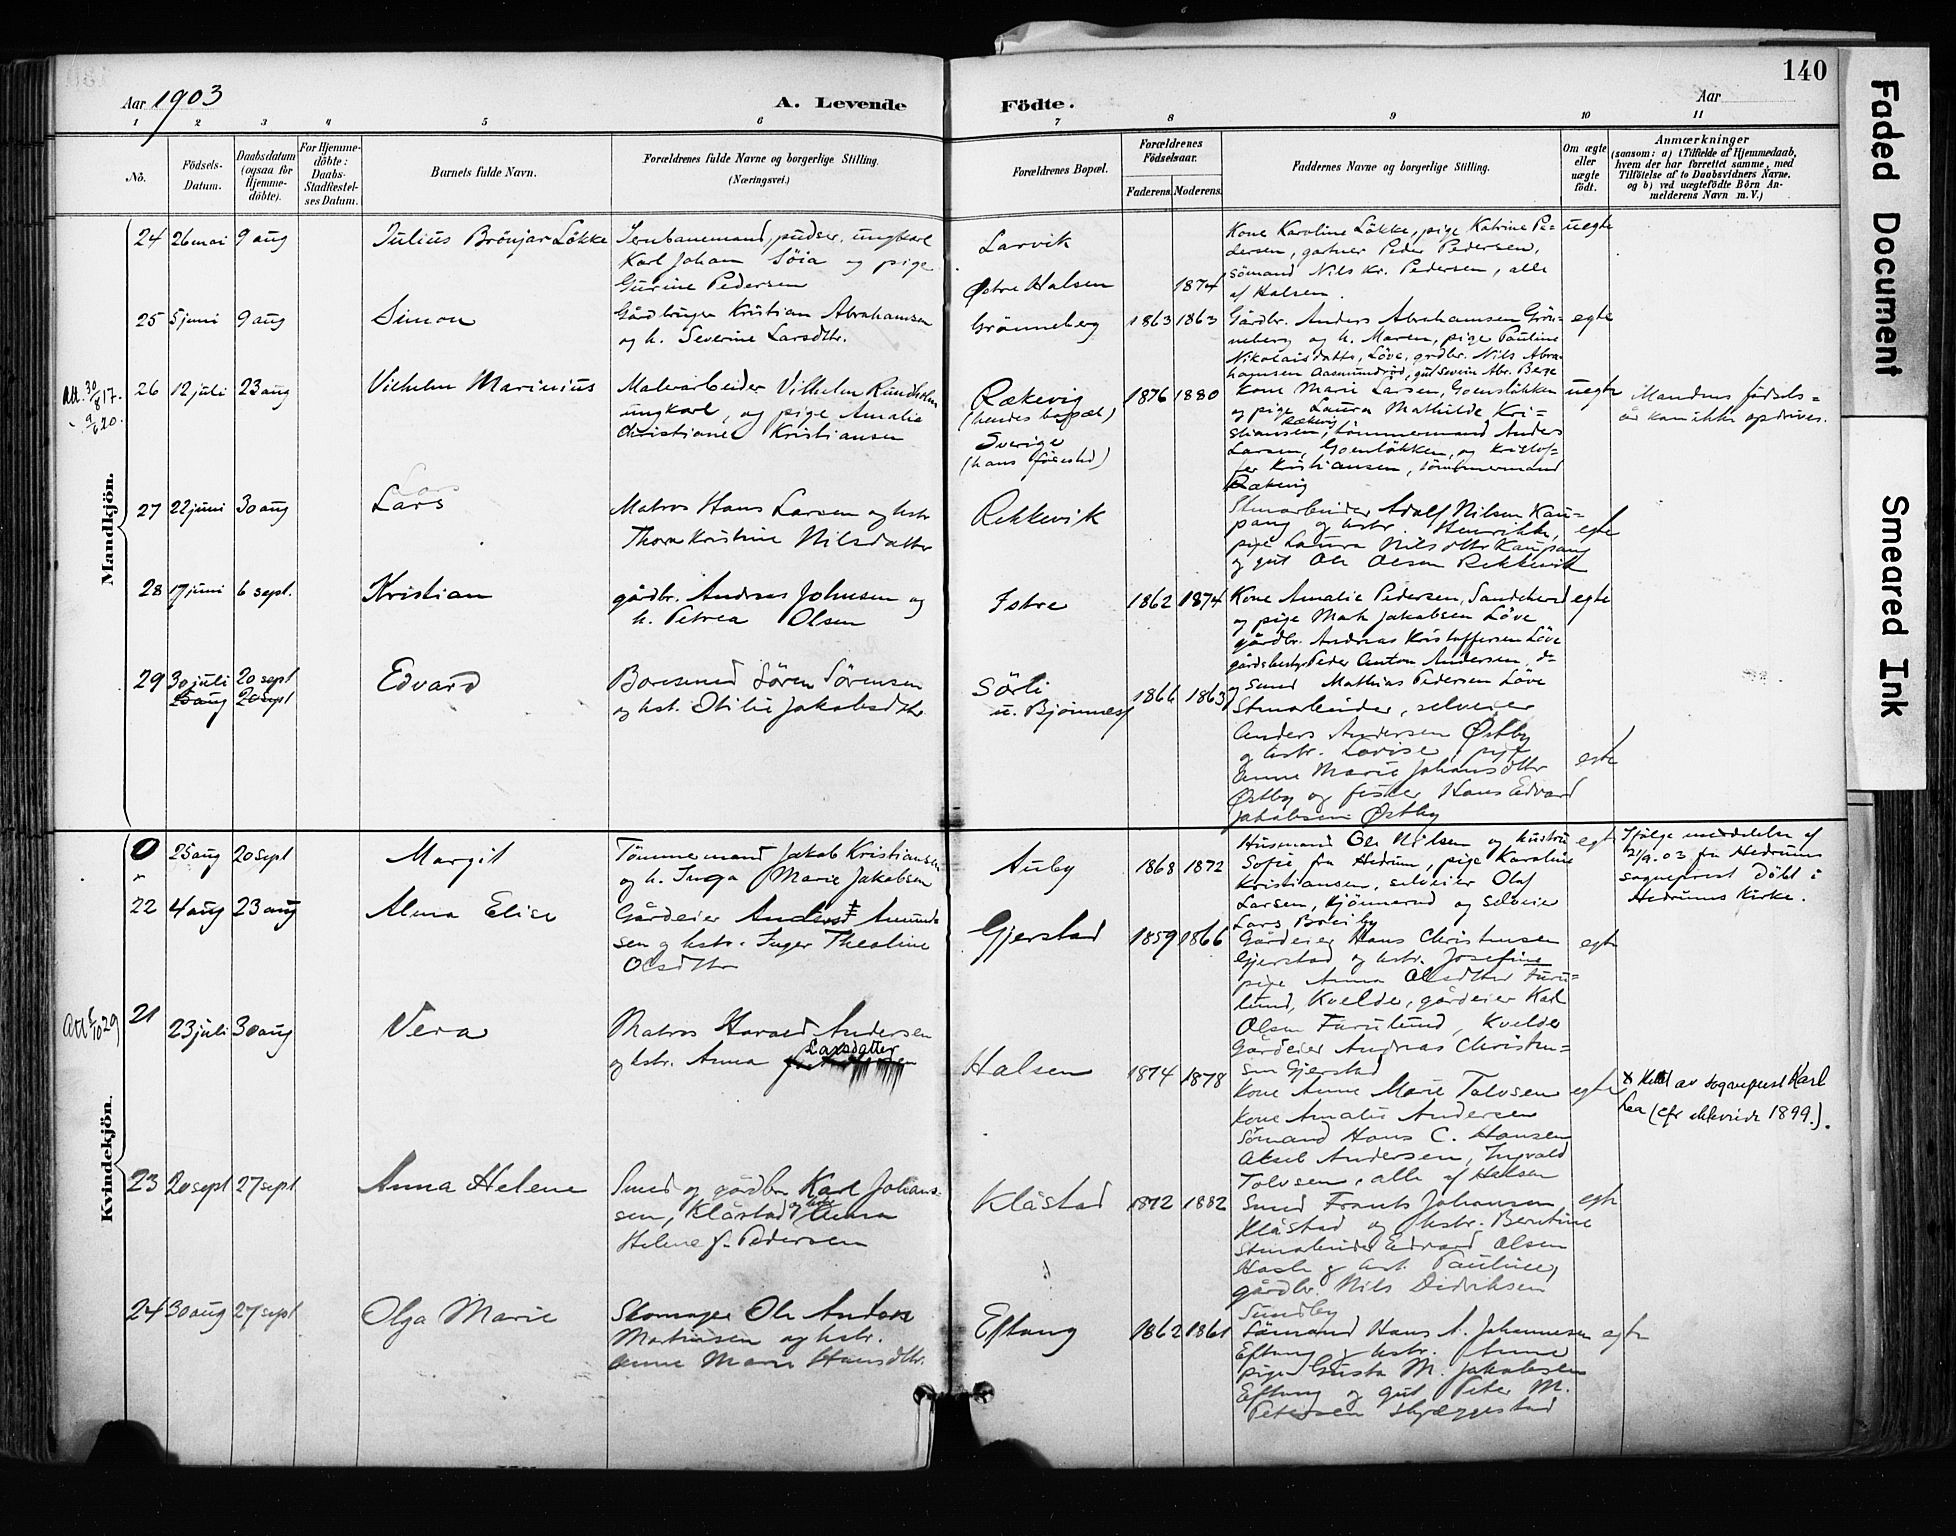 140
Aar 1903
A. Levende
Födte.
Aar
1 2 3 4 5 6 7 8 9 10 11
No.
Födsels-Datum.
Daabsdatum (ogsaa for Hjemme-döbte).
For Hjemme-döbte: Daabs-Stadfæstel-ses Datum.
Barnets fulde Navn.
Forældrenes fulde Navne og borgerlige Stilling. (Næringsvei.)
Forældrenes Bopæl.
Forældrenes Födselsaar.
Faderens. Moderens.
Faddernes Navne og borgerlige Stilling.
Om ægte eller uægte födt.
Anmærkninger
(saasom: a) i Tilfælde af Hjemmedaab,
hvem der har forrettet samme, med
Tilföielse af to Daabsvidners Navne.
og b) ved uægtefödte Börn An-
melderens Navn m. V.)
Mandkjön.
24 26 mai 9 aug Julius Brönjar Lökke
Jernbanemand, pudser, ungkarl
Karl Johan Söia og pige
Gurine Pedersen
Larvik
Østre Halsen 1874
Kone Karoline Lökke, pige Katrine Pe-
dersen, gartner Peder Pedersen,
sömand Nils Kr. Pedersen, alle
af Halsen.
uegte
25 5 juni 9 aug Simon
Gårdbruger Kristian Abrahamsen
og h. Severine Larsdtr.
Grönneberg 1863 1863
Gårdbr. Anders Abrahamsen Grön-
neberg og h. Maren, pige Pauline
Nikolaisdatter, Löve, grdbr. Nils Abra
hamsen Aasmundröd, gut Severin Abr. Berge
egte
Att. 30/8 17.
- 9/6 20.
26 12 juli 23 aug Vilhelm Marinius
Malerarbeider Vilhelm Rundholm
ungkarl, og pige Amalie
Christiane Kristiansen
Rækevig
(hendes bopæl)
Sverige
(hans födested)
1876 1880
Kone Marie Larsen, Goenlökken
og pige Laura Mathilde Kri-
stiansen, Rækevig tömmermand Anders
Larsen, Goenlökken, og Kristof-
fer Kristiansen, tömmermand
Rækevig
uegte
Mandens födsels-
år kan ikke opdrives.
27 22 juni 30 aug Lars
Matros Hans Larsen og hstr
Thora Kristine Nilsdatter
Rekkevik
Stenarbeider Adolf Nilsen Kau-
pang og hstr. Henrikke,
pige Laura Nilsdtr Kaupang
og gut Ole Olsen Rekkevik
egte
28 17 juni 6 sept. Kristian
gårdbr. Andreas Johnsen og
h. Petrea Olsen
Istre 1862 1874
Kone Amalie Pedersen, Sandeherred
og pige Mate Jakobsen Löve
gårdbr. Andreas Kristoffersen Löve
gårdsbestyr Peder Anton Andersen, do
og smed Mathias Pedersen Löve
egte
29 30 juli 20 sept Edvard
20 sept
Sören Sörensen
og hst. Otilie Jakobsdtr.
Sörli
u. Bjönnes
1866 1863
Stenarbeider, selveier
Anders Andersen Østby
og hstr. Lovise, pige
Anne Marie Johansdtr
Østby og fisker Hans Edvard
Jakobsen Østby
egte
Kvindekjön.
0 25 aug 20 sept Margit
Tömmermand Jakob Kristiansen
og h. Inga Marie Jakobsen
Auby 1868 1872
Husmand Ole Nilsen og hustru
Sofie fra Hedrum, pige Karoline
Kristiansen, selveier Olaf
Larsen, Kjönnerud og selveier
Lars Breiby
egte
Ifölge meddelelse af
21/9.03 fra Hedrums
sogneprest Döbt i
Hedrums Kirke.
22 4 aug 23 aug Alma Elise
Gårdeier Anders Amund-
sen og hstr. Inger Theoline
Olsdtr
Gjerstad 1859 1866
Gårdeier Hans Christensen
Gjerstad og hstr. Josefine
pige Anna Olsdtter Furu-
lund, Kvelde, gårdeier Karl
Olsen Furulund, Kvelde
Gårdeier Andreas Christen-
sen Gjerstad
egte
Att 5/10 29
21 23 juli 30 aug Vera
Matros Harald Andersen
og hstr. Anna Larsdatter
Halsen 1874 1878
Kone Anne Marie Tolvsen
Kone Amalie Andersen
Sömand Hans C. Hansen
Aksel Andersen, Ingvald
Tolvsen, alle af Halsen
egte
x av sogneprest Karl
(cfr 1899.).
23 20 sept 27 sept Anna Helene
Smed og gårdbr. Karl Johans-
sen, Klåstad og hstr Anna
Helene f. Pedersen
Klåstad 1872 1882
Smed Frants Johansen
Klåstad og hstr. Berntine
Stenarbeider Edvard Olsen
Hasle og hst. Pauline,
gårdbr. Nils Didriksen
Sundby
egte
24 30 aug 27 sept Olga Marie
Skomager Ole Anders
Martinsen og hstr.
Anne Marie Hansdtr.
Eftang 1862 1861
Sömand Hans A. Johannesen
Eftang og hstr. Anne
pige Gusta M. Jakobsen
Eftang og gut Peter M.
Petersen Skjeggestad
egte
Faded Document
Smeared Ink